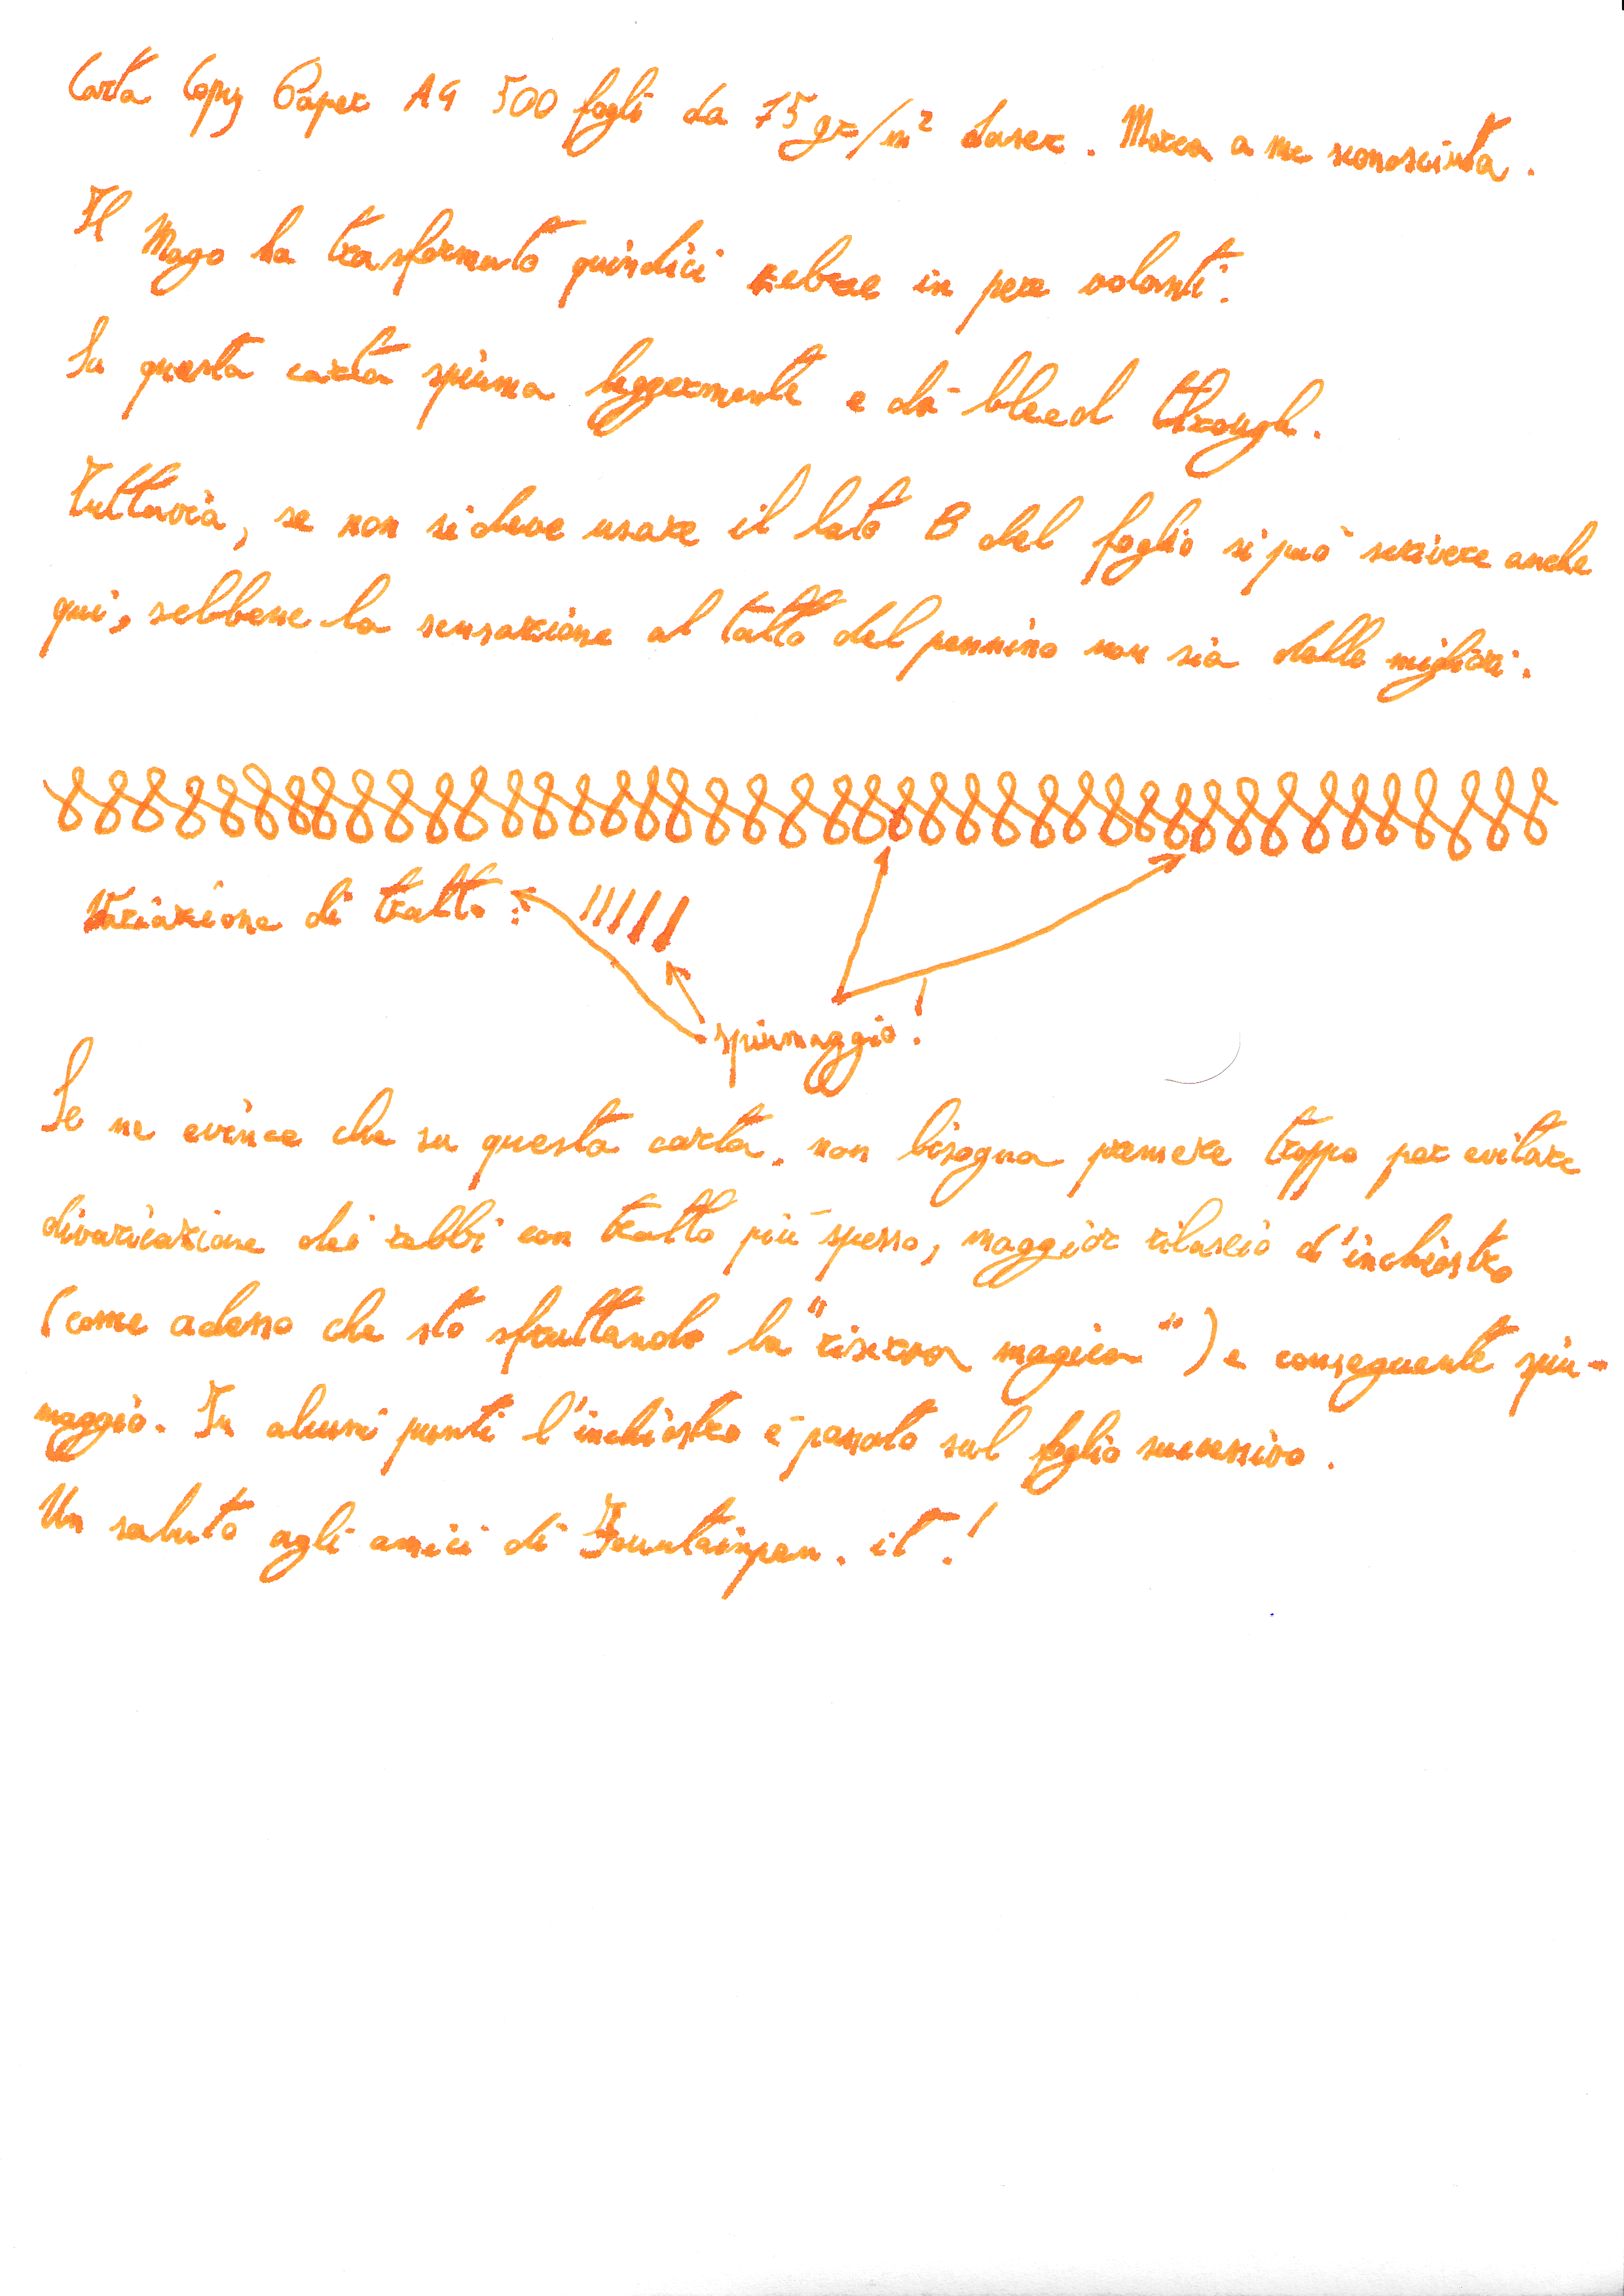 Carta Copy Paper A4 500 fogli da 75 gr/m² Laser. Marca a me sconosciuta.
Il Mago ha trasformato quindici zebre in pere volanti.
Su questa carta spiuma leggermente e dà bleed through.
Tuttavia, se non si deve usare il lato B del foglio si può scrivere anche
qui, sebbene la sensazione al tatto del pennino non sia delle migliori.
Variazione di tratto:
spiumaggio!
Se ne evince che su questa carta. non bisogna premere troppo per evitare
divaricazione dei rebbi con tratto più spesso, maggior rilascio d'inchiostro
(come adesso che sto sfruttando la "riserva magica") e conseguente spiu-
maggio. In alcuni punti l'inchiostro è passato sul foglio successivo.
Un saluto agli amici di Fountainpen.it!